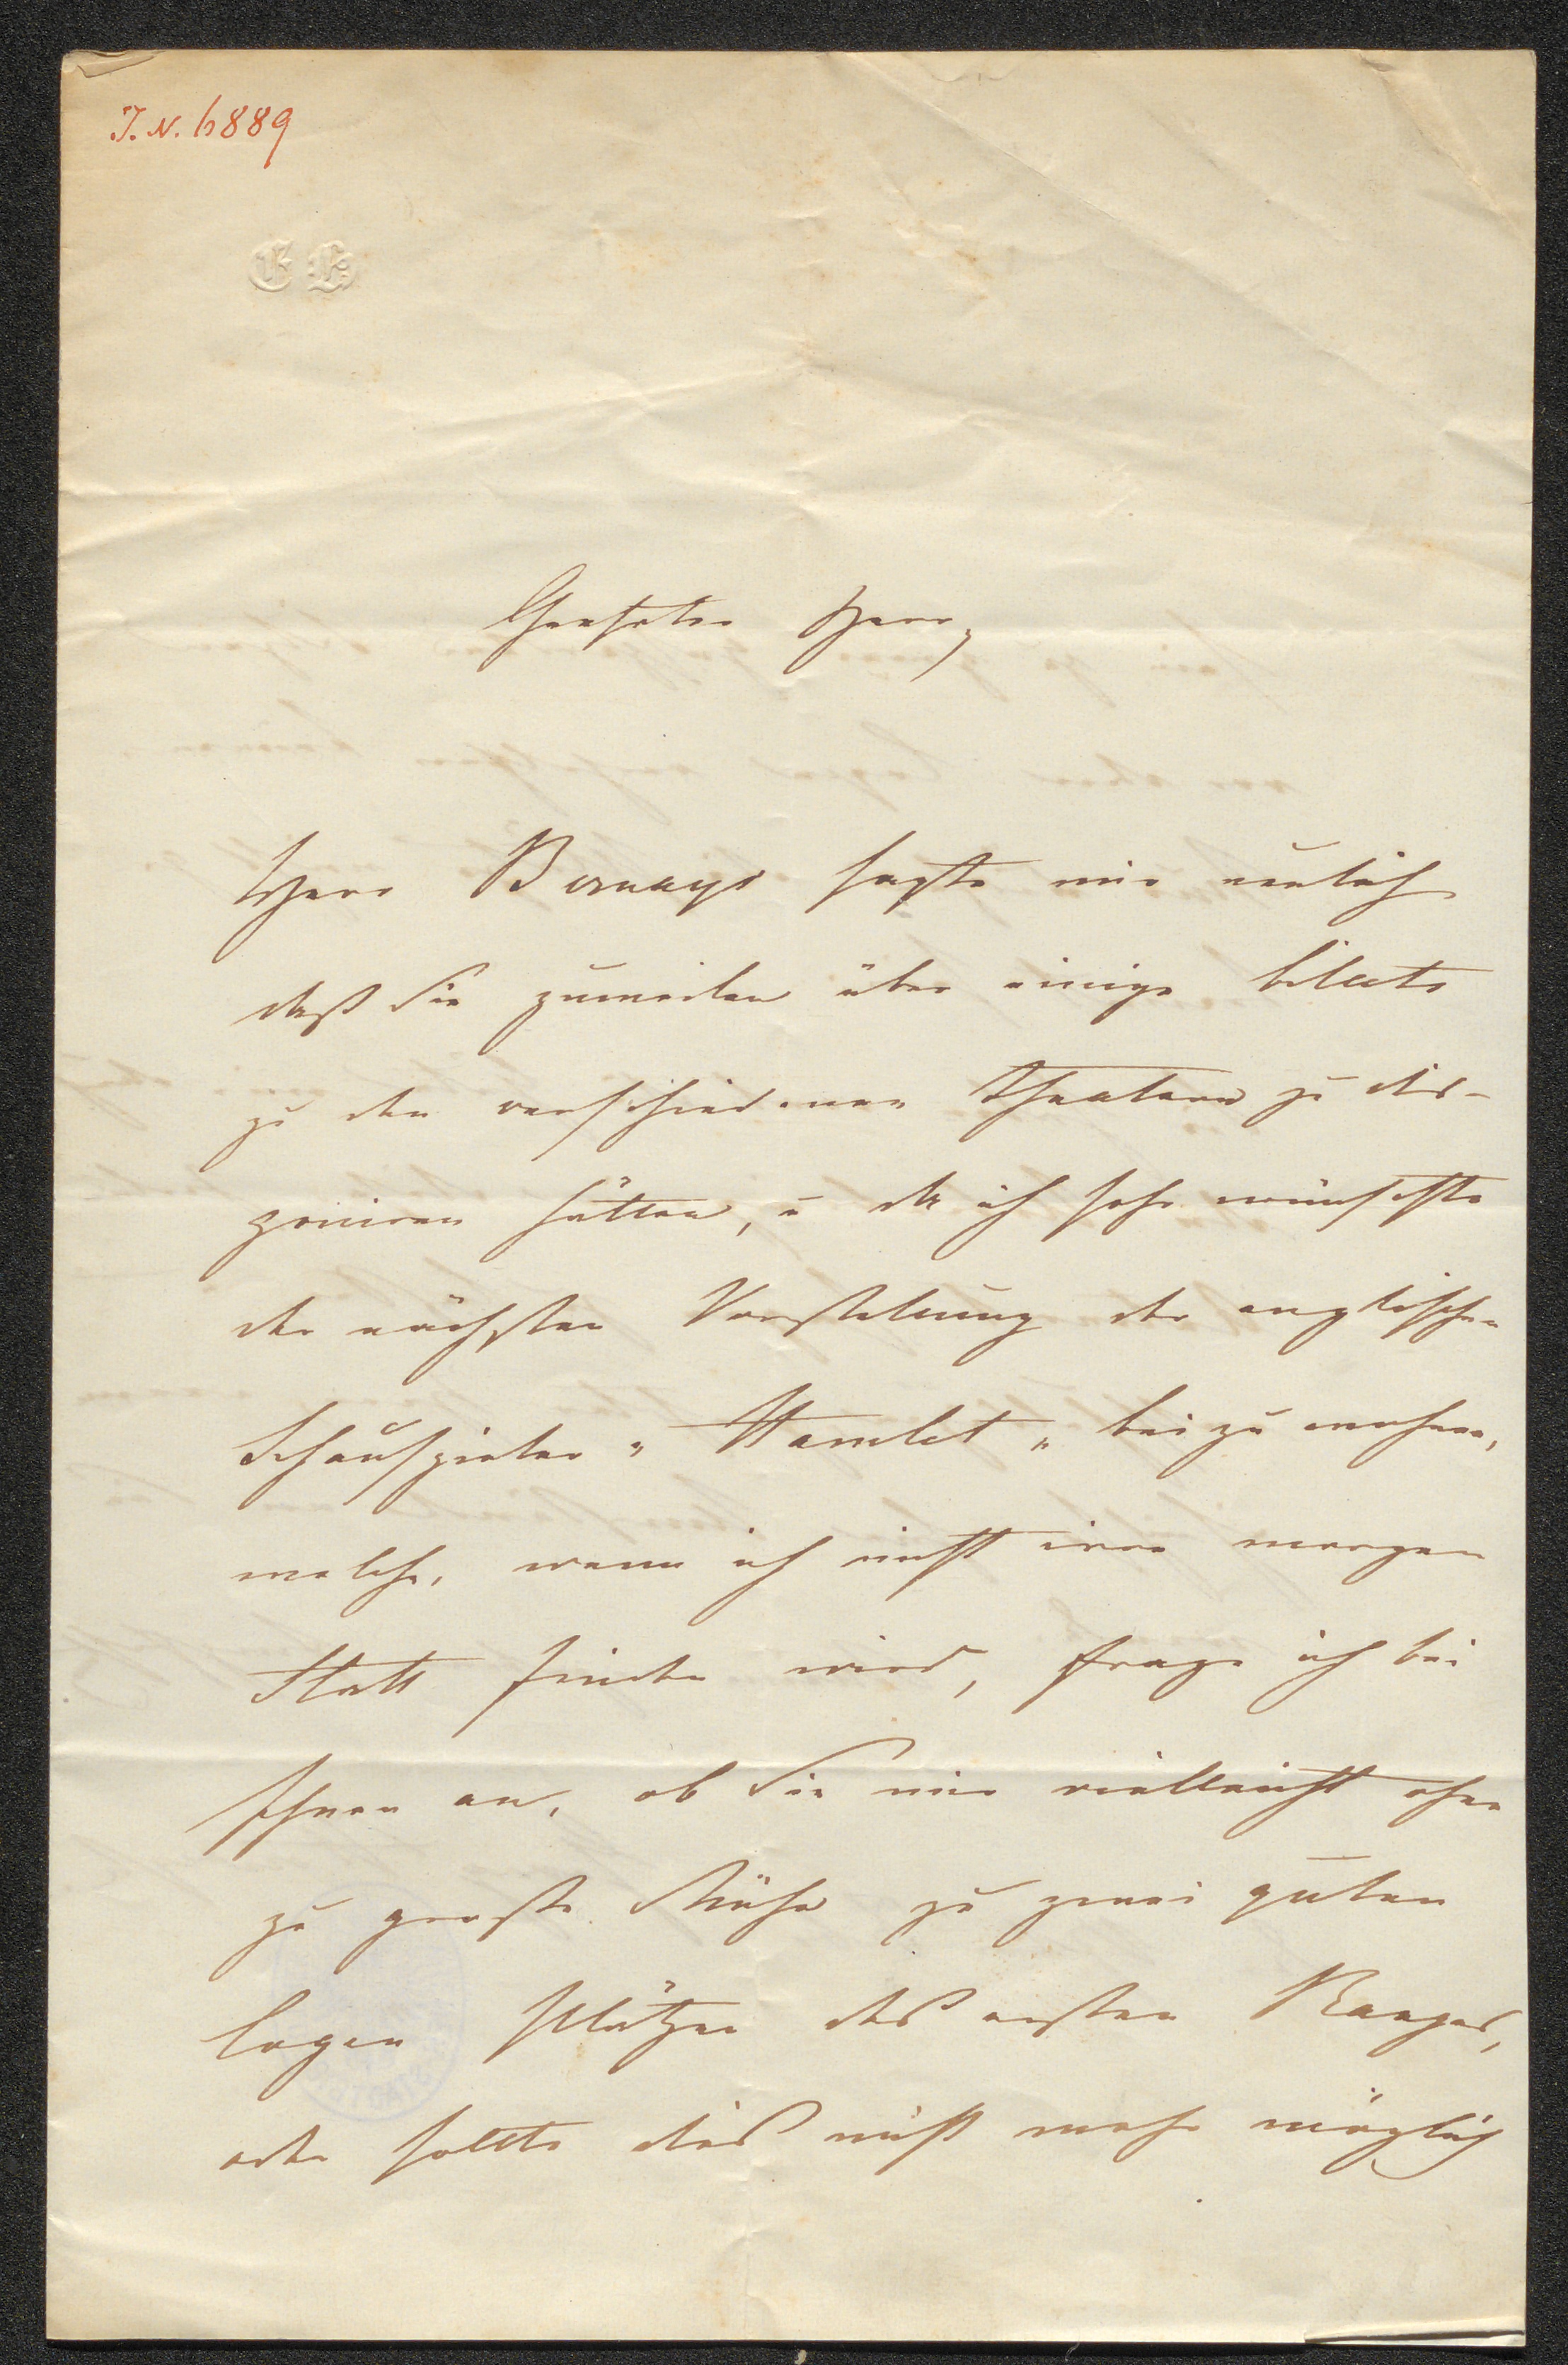 J. N. 6889
E B
Geehrter Herr,
Herr Bernays sagte mir neulich
daß Sie zuweilen über einige bilets
zu den verschiedenen Theatern zu dis-
poniren hätten, u da ich sehr wünschte
der nächsten Vorstellung der englischen
Schauspieler "Hamlet" bei zu wohnen,
welche, wenn ich nicht irre morgen
Statt finden wird, frage ich bei
Ihnen an, ob Sie mir vielleicht ohne
zu große Mühe zu zwei guten
Logen Plätzen des ersten Ranges,
oder sollte dies nicht mehr möglich